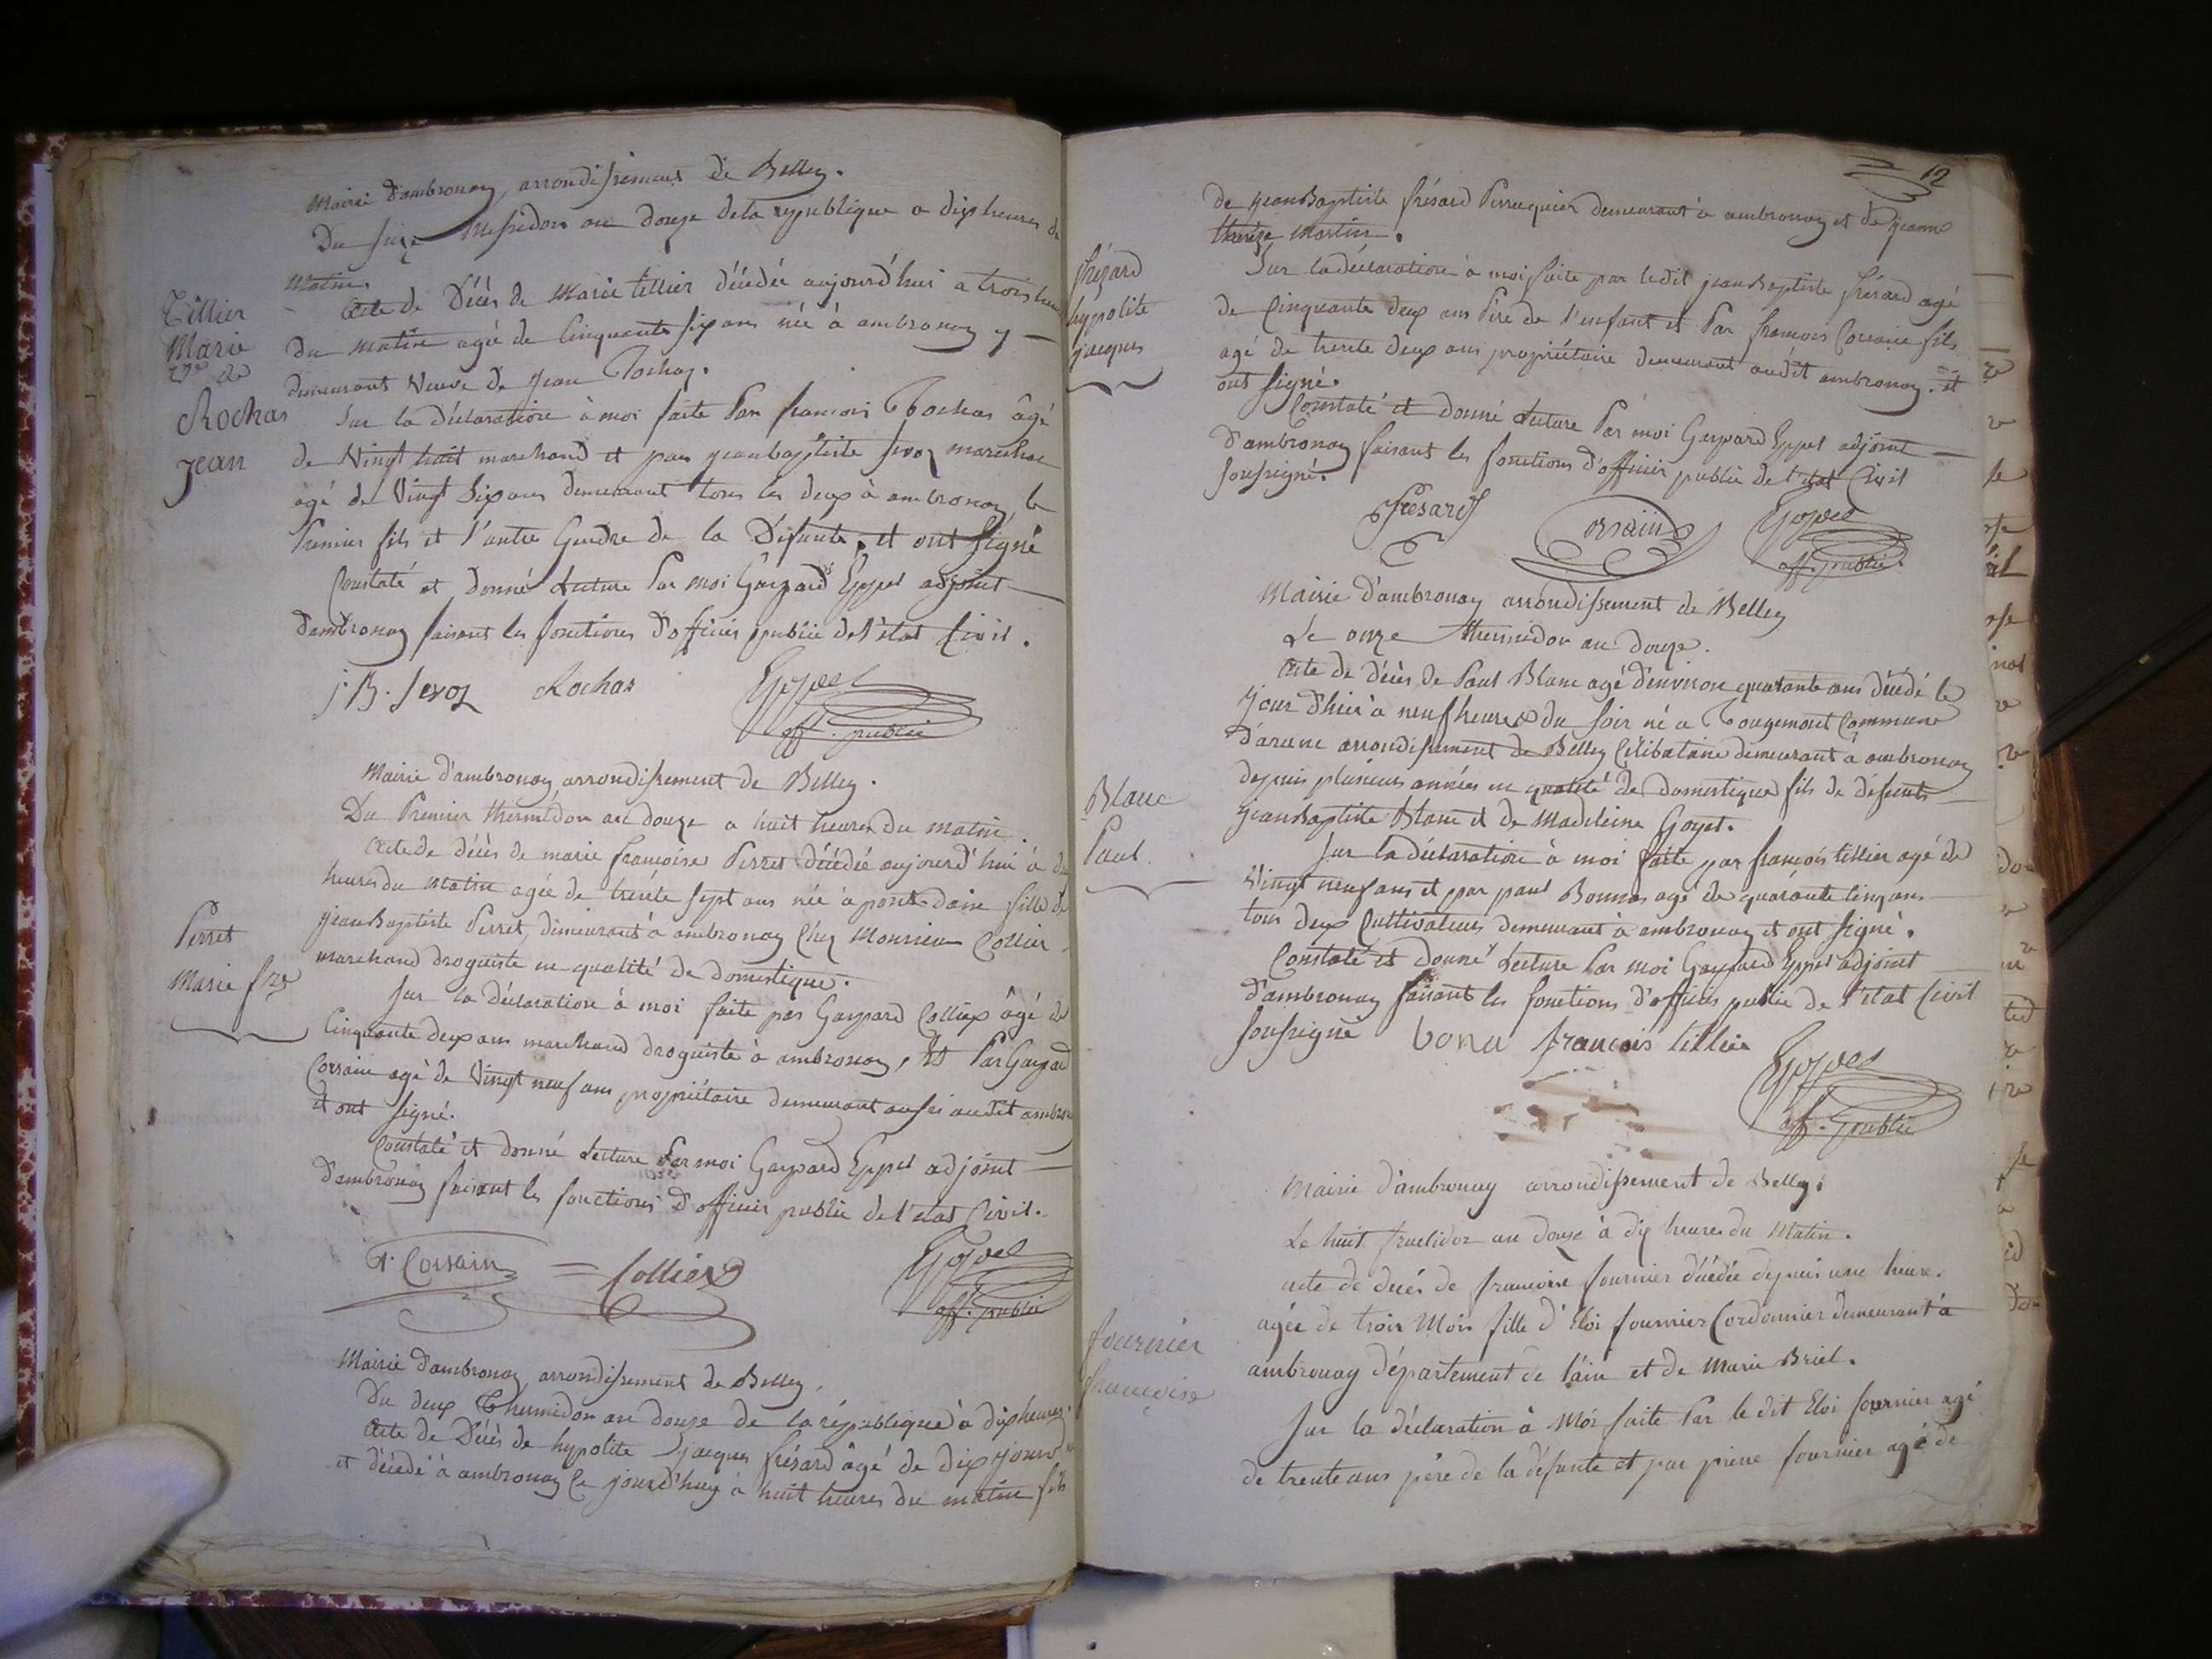 Mairie d'ambronay, arrondissement de Belley.
Du seize Messidor an douze de la republique a dix heures du
Matin.
Tillier
Marie
Ve de
Rochas
Jean
Acte de Décès de Marie tillier décédée aujourd'hui a trois heures
du matin agée de Cinquante six ans née à ambronay y
demeurant Veuve de Jean Rochas.
Sur la déclaration à moi faite Par francois Rochas âgé
de Vingt huit marchand et par jean baptiste
agé de Vingt Six ans demeurant tous les deux à ambronay, le
Premier fils et l'autre Gendre de la Défunte, et ont signé
Constaté et donné Lecture Par moi Gaspard Eppel adjoint
d'ambronay faisant les fonctions d'officier public de l'état Civil.
J.B. Rochas Eppel
off. public
Mairie d'ambronay, arrondissement de Belley.
Du Premier thermidor an douze a huit heures du matin.
Perret
Marie fse
Acte de décès de marie francoise Perret décédée aujourd'hui à
heures du Matin agée de trente sept ans née à pont-dain fille de
jean Baptiste Perret, demeurant à ambronay Chez Monsieur Collier
marchand droguiste en qualité de domestique.
Sur la déclaration à moi faite par Gaspard Collier âgé de
Cinquante deux ans marchand droguiste à ambronay, Et Par Gaspard
Corsain agé de Vingt neuf ans propriétaire demeurant aussi audit ambronay
et ont signé.
Constaté et donné Lecture Par moi Gaspard Eppel adjoint
d'ambronay faisant les fonctions d'officier public de l'état Civil.
G. Corsain Collier Eppel
off. public
Mairie d'ambronay, arrondissement de Belley.
Du deux Thermidor an douze de la république à dix heures
Acte de Décès de hypolite Jacques frésard âgé de dix jours
et décédé à ambronay Ce jourd'huy à huit heures du matin fils
12
de jean Baptiste frésard Perruquier demeurant à ambronay et de jeanne
thereze Martin.
frésard
hypolite
jacques
Sur la déclaration à moi faite par ledit jean Baptiste frésard agé
de Cinquante deux ans Père de l'enfant et Par francois Corsain fils
agé de trente deux ans propriétaire demeurant audit ambronay. et
ont signé.
Constaté et donné Lecture Par moi Gaspard Eppel adjoint
d'ambronay faisant les fonctions d'officier public de l'état Civil
soussigné.
fresard Corsain Eppel
off. public.
Mairie d'ambronay arrondissement de Belley
Le onze thermidor an douze.
Blanc
Paul
Acte de décès de Paul Blanc agé d'environ quarante ans décédé le
jour d'hier à neuf heures du soir né a Rougemont Commune
d'aranc arrondissement de Belley Célibataire demeurant à ambronay
depuis plusieurs années en qualité de domestique fils de défunts
jean Baptiste Blanc et de Madeleine Goyet.
Sur la déclaration à moi faite par francois tillier agé de
Vingt neuf ans et par paul Bonnas agé de quarante Cinq ans
tous deux Cultivateurs demeurant à ambronay et ont signé.
Constaté et donné Lecture Par moi Gaspard Eppel adjoint
d'ambronay faisant les fonctions d'officier public de l'état Civil
soussigné bona francois tillier
Eppel
off. public
Mairie d'ambronay arrondissement de Belley.
Le huit fructidor an douze à dix heures du Matin.
fournier
francoise
acte de décés de francoise fournier décédée depuis une heure.
agée de trois Mois fille d'Eloi fournier Cordonnier demeurant à
ambronay département de l'ain et de Marie Briel.
Sur la déclaration à Moi faite Par le dit Eloi fournier agé
de trente ans père de la défunte et par pierre fournier agé de